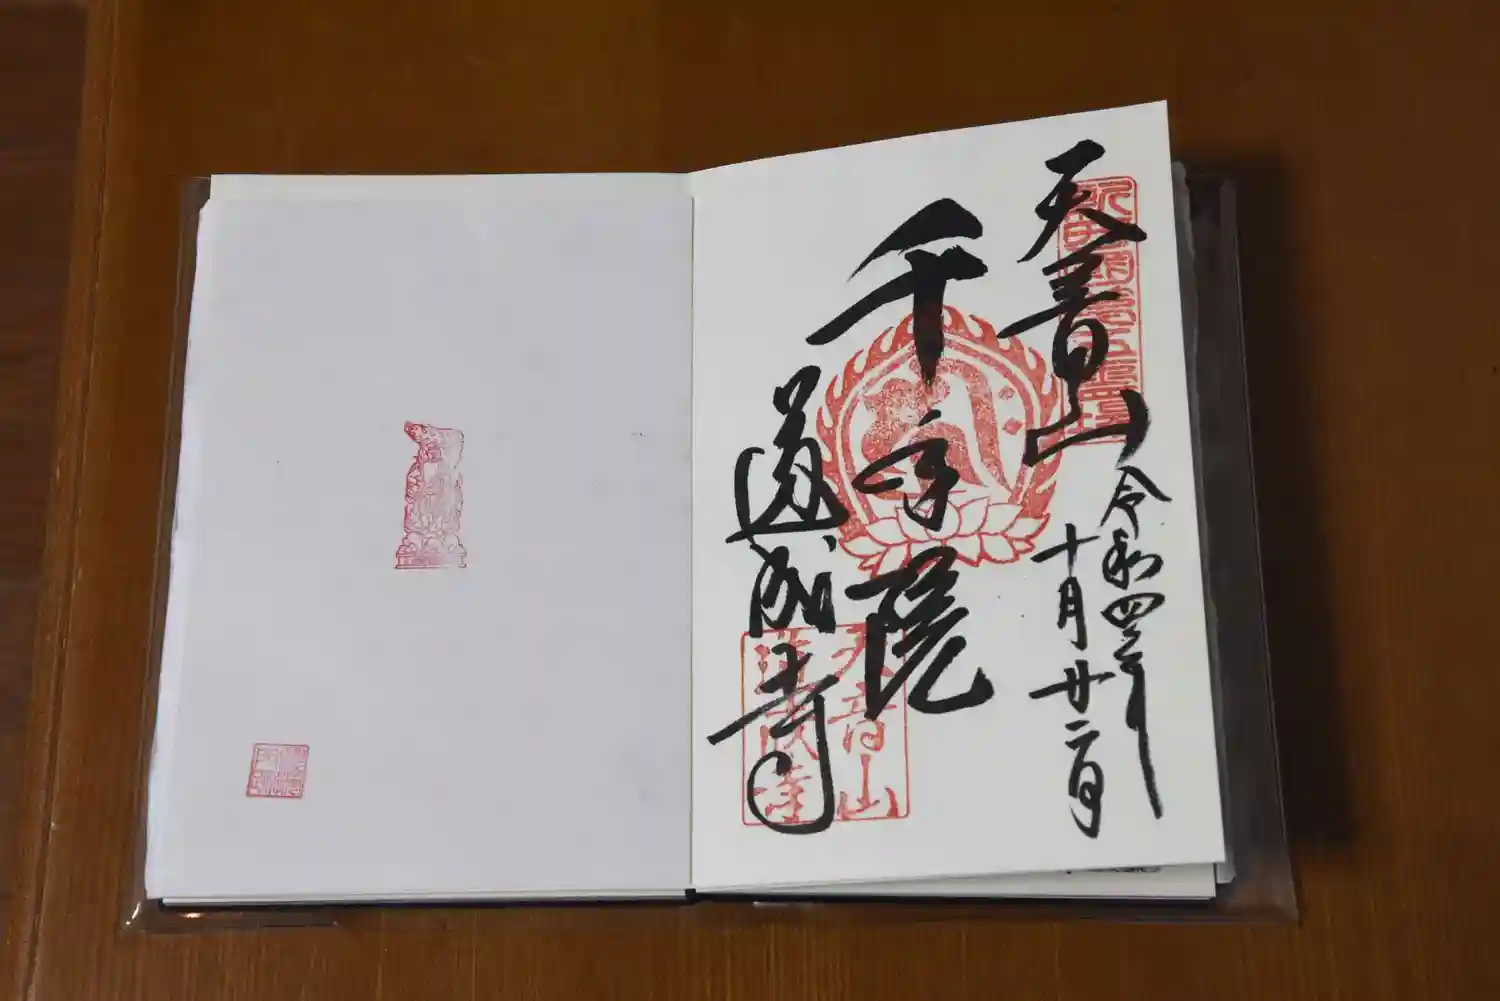 天音山
令和四年
十月廿二日
千手院
道成寺
天音山
道成寺